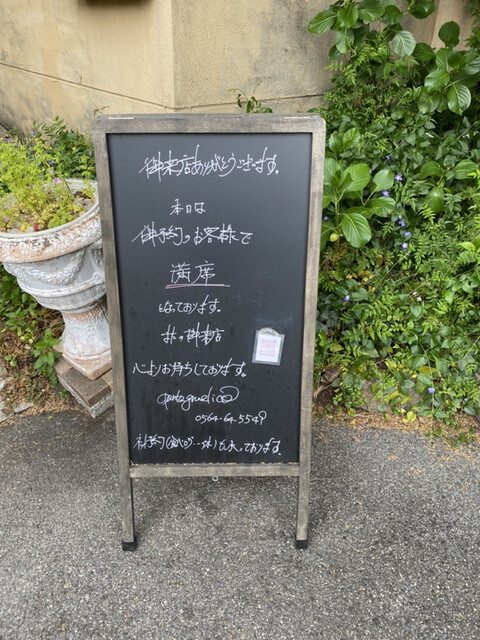 御来店ありがとうございます。
本日は
御予約のお客様で
満席
となっております。
またの御来店
心よりお待ちしております。
0564-64-5549
御予約
しております。